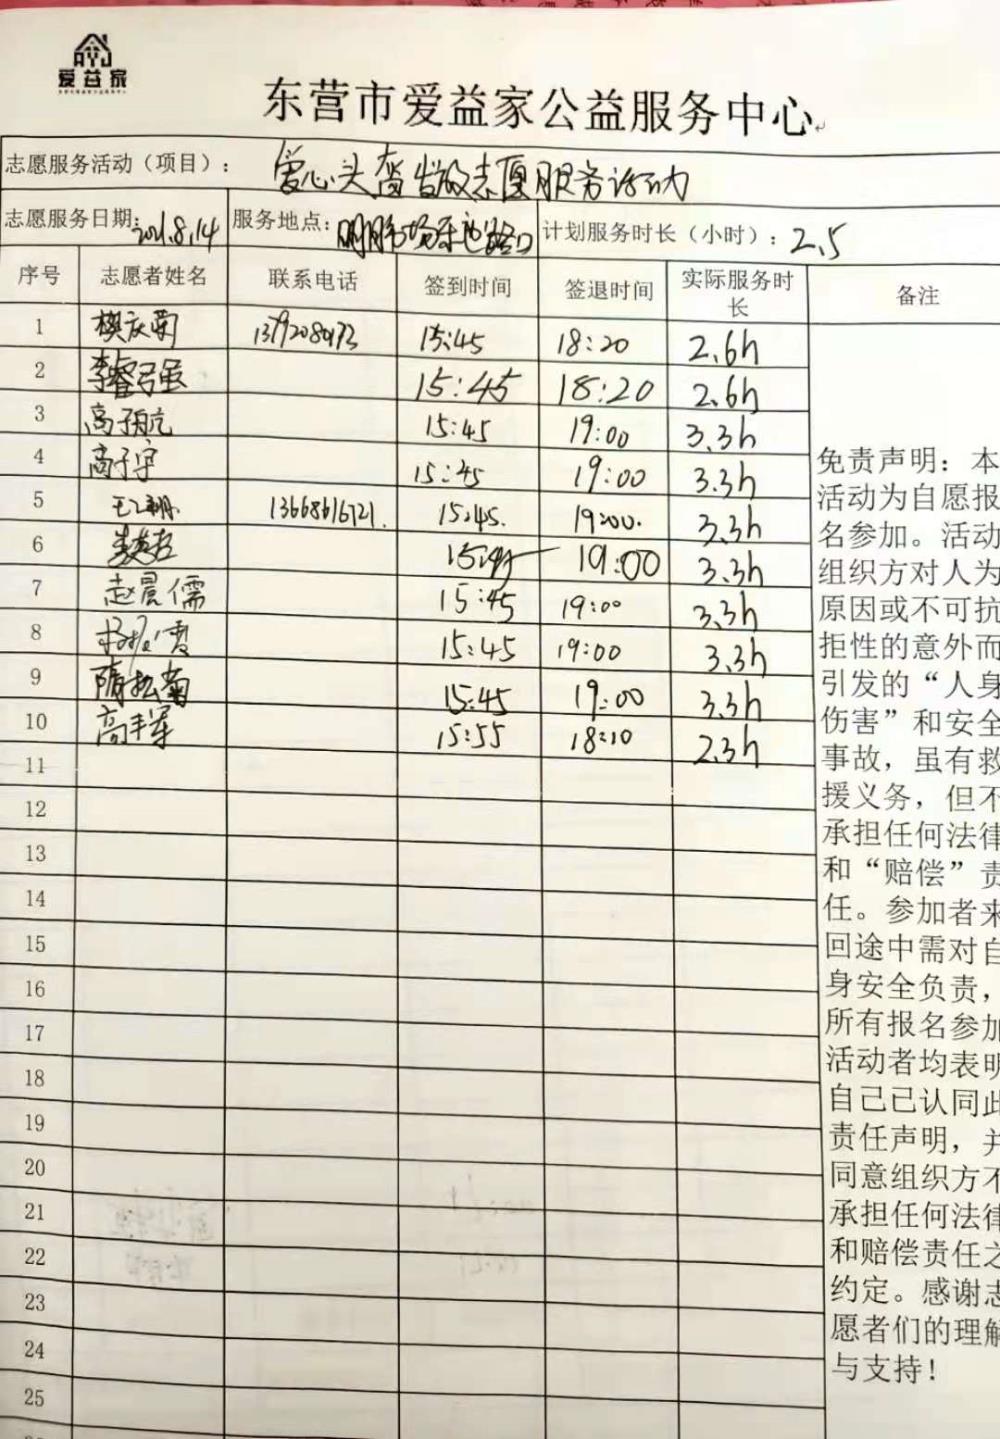 爱益家
东营市爱益家公益服务中心
志愿服务活动（项目）： 爱心头盔发放志愿服务活动
志愿服务日期: 2021.8.14 服务地点: 路口 计划服务时长（小时）: 2.5
序号 志愿者姓名 联系电话 签到时间 签退时间 实际服务时长 备注
1 樊庆菊 15:45 18:20 2.6h
2 李睿 15:45 18:20 2.6h
3 高子航 15:45 19:00 3.3h
4 高子宇 15:45 19:00 3.3h
5 13668616721. 15:45. 19:00. 3.3h
6 15:45 19:00 3.3h
7 赵晨儒 15:45 19:00 3.3h
8 15:45 19:00 3.3h
9 隋松菊 15:45 19:00 3.3h
10 高丰军 15:55 18:10 2.3h
11
12
13
14
15
16
17
18
19
20
21
22
23
24
25
免责声明：本
活动为自愿报
名参加。活动
组织方对人为
原因或不可抗
拒性的意外而
引发的“人身
伤害”和安全
事故，虽有救
援义务，但不
承担任何法律
和“赔偿”责
任。参加者来
回途中需对自
身安全负责，
所有报名参加
活动者均表明
自己已认同此
责任声明，并
同意组织方不
承担任何法律
和赔偿责任之
约定。感谢志
愿者们的理解
与支持！